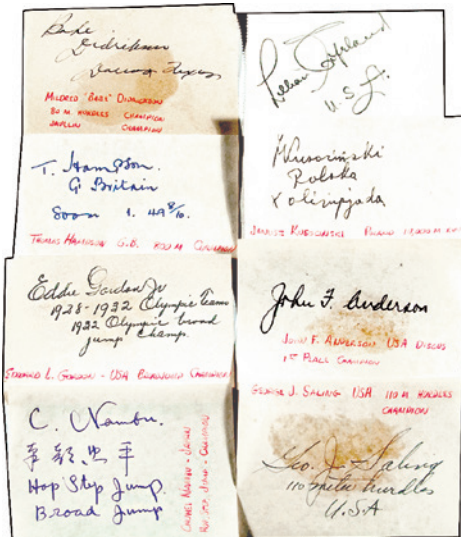 Babe
Didrikson
Dallas, Texas
MILDRED "BABE" DIDRICKSON
80 M. HURDLES CHAMPION
JAVLIN CHAMPION
T. Hampson.
G. Britain
800m 1. 49 8/10.
THOMAS HAMPSON G.B. 800 M CHAMPION
Eddie Gordon Jr
1928-1932 Olympic Teams
1932 Olympic broad
jump champ.
EDWARD L. GORDON - USA BROADJUMP CHAMPION
C. Nambu.
南部忠平
Hop Step Jump.
Broad Jump
CHUHEI NAMBU - JAPAN
HOP STEP JUMP - CHAMPION
Lillian Copeland
U.S.A.
J Kusociński
Polska
X olimpjada
JANUSZ KUSOCINSKI POLAND 10,000 M
John F. Anderson
JOHN F. ANDERSON USA DISCUS
1ST PLACE CHAMPION
GEORGE J. SALING USA 110 M HURDLES
CHAMPION
Geo. J. Saling
110 meter hurdles
U.S.A